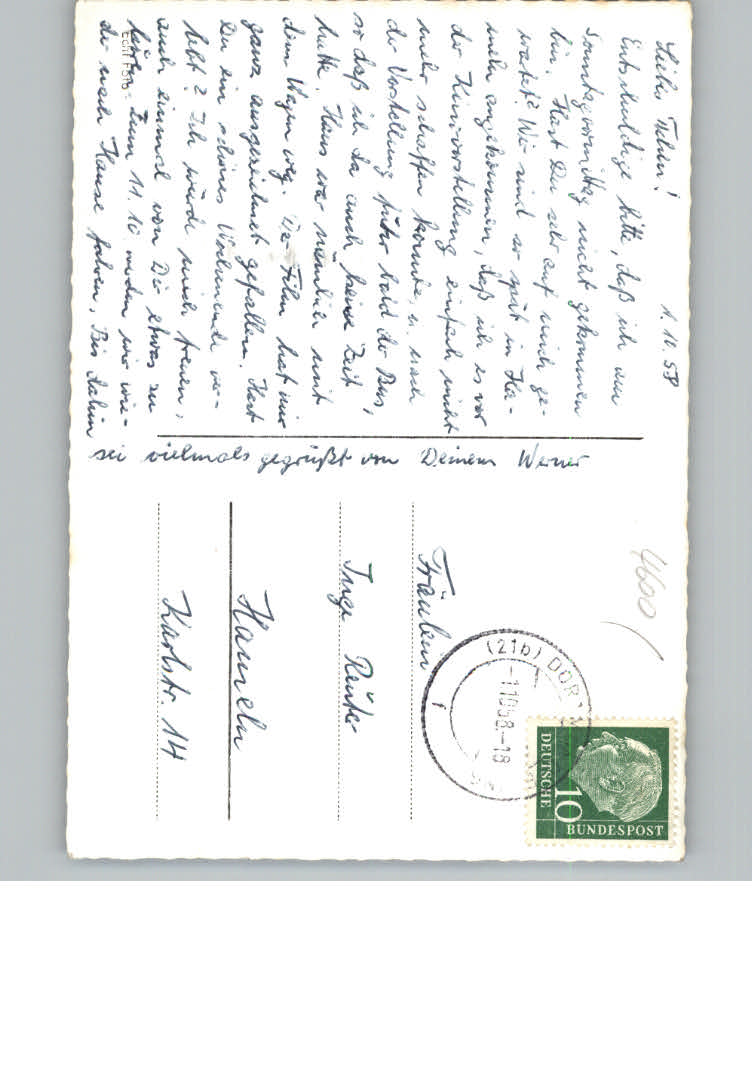 1.10.58
Entschuldige bitte, daß ich am
Sonntagvormittag nicht gekommen
bin. Hast Du sehr auf mich ge-
wartet? Wir sind so spät in Ha-
meln angekommen, daß ich es vor
der Kinovorstellung einfach nicht
mehr schaffen konnte, u. nach
der Vorstellung fuhr bald der Bus,
so daß ich da auch keine Zeit
hatte. Hans war nämlich mit
dem Wagen weg. Der Film hat mir
ganz ausgezeichnet gefallen. Hast
Du ein schönes Wochenende ver-
lebt? Ich würde mich freuen,
auch einmal von Dir etwas zu
hören. Zum 11.10. werden wir wie-
der nach Hause fahren. Bis dahin
sei vielmals gegrüßt von Deinem Werner
Echt Foto
4600
Fräulein
Inge Reuter
Hameln
Karlstr. 14
(21b) DORTM
-1.10.58-18
DEUTSCHE
10
BUNDESPOST